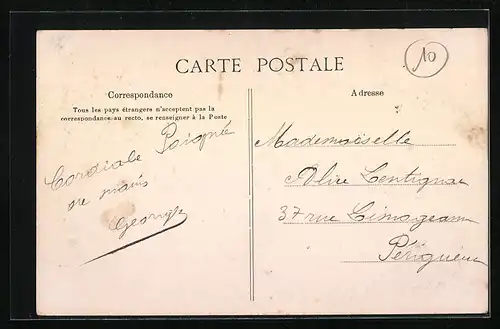 10
CARTE POSTALE
Correspondance
Tous les pays étrangers n'acceptent pas la
correspondance au recto, se renseigner à la Poste
Adresse
Cordiale Poignée
de mains
Georges
Mademoiselle
Alice Lentignac
37 rue Limogeanne
Périgueux